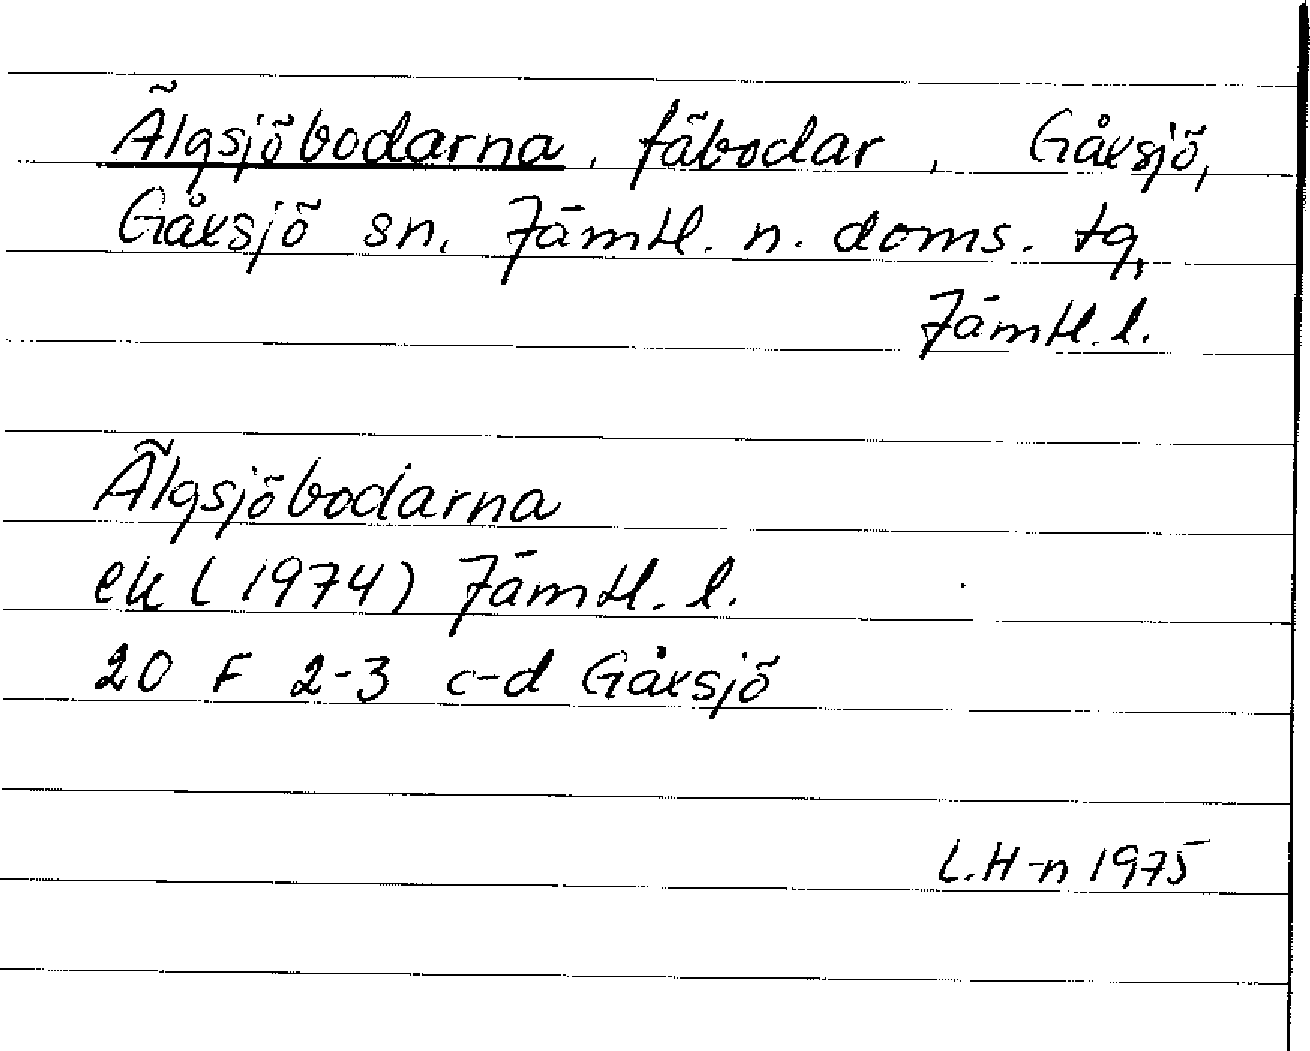 Älgsjöbodarna, fäbodar, Gåxsjö,
Gåxsjö sn. Jämtl. n. doms. tg,
Jämtl. l.
Älgsjöbodarna
ek (1974) Jämtl. l.
20 F 2-3 c-d Gåxsjö
L.H-n 1975